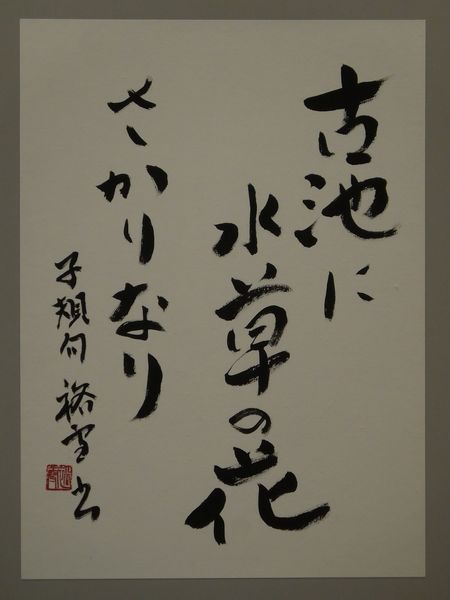 古池に
水草の花
さかりなり
子規句 裕雪書